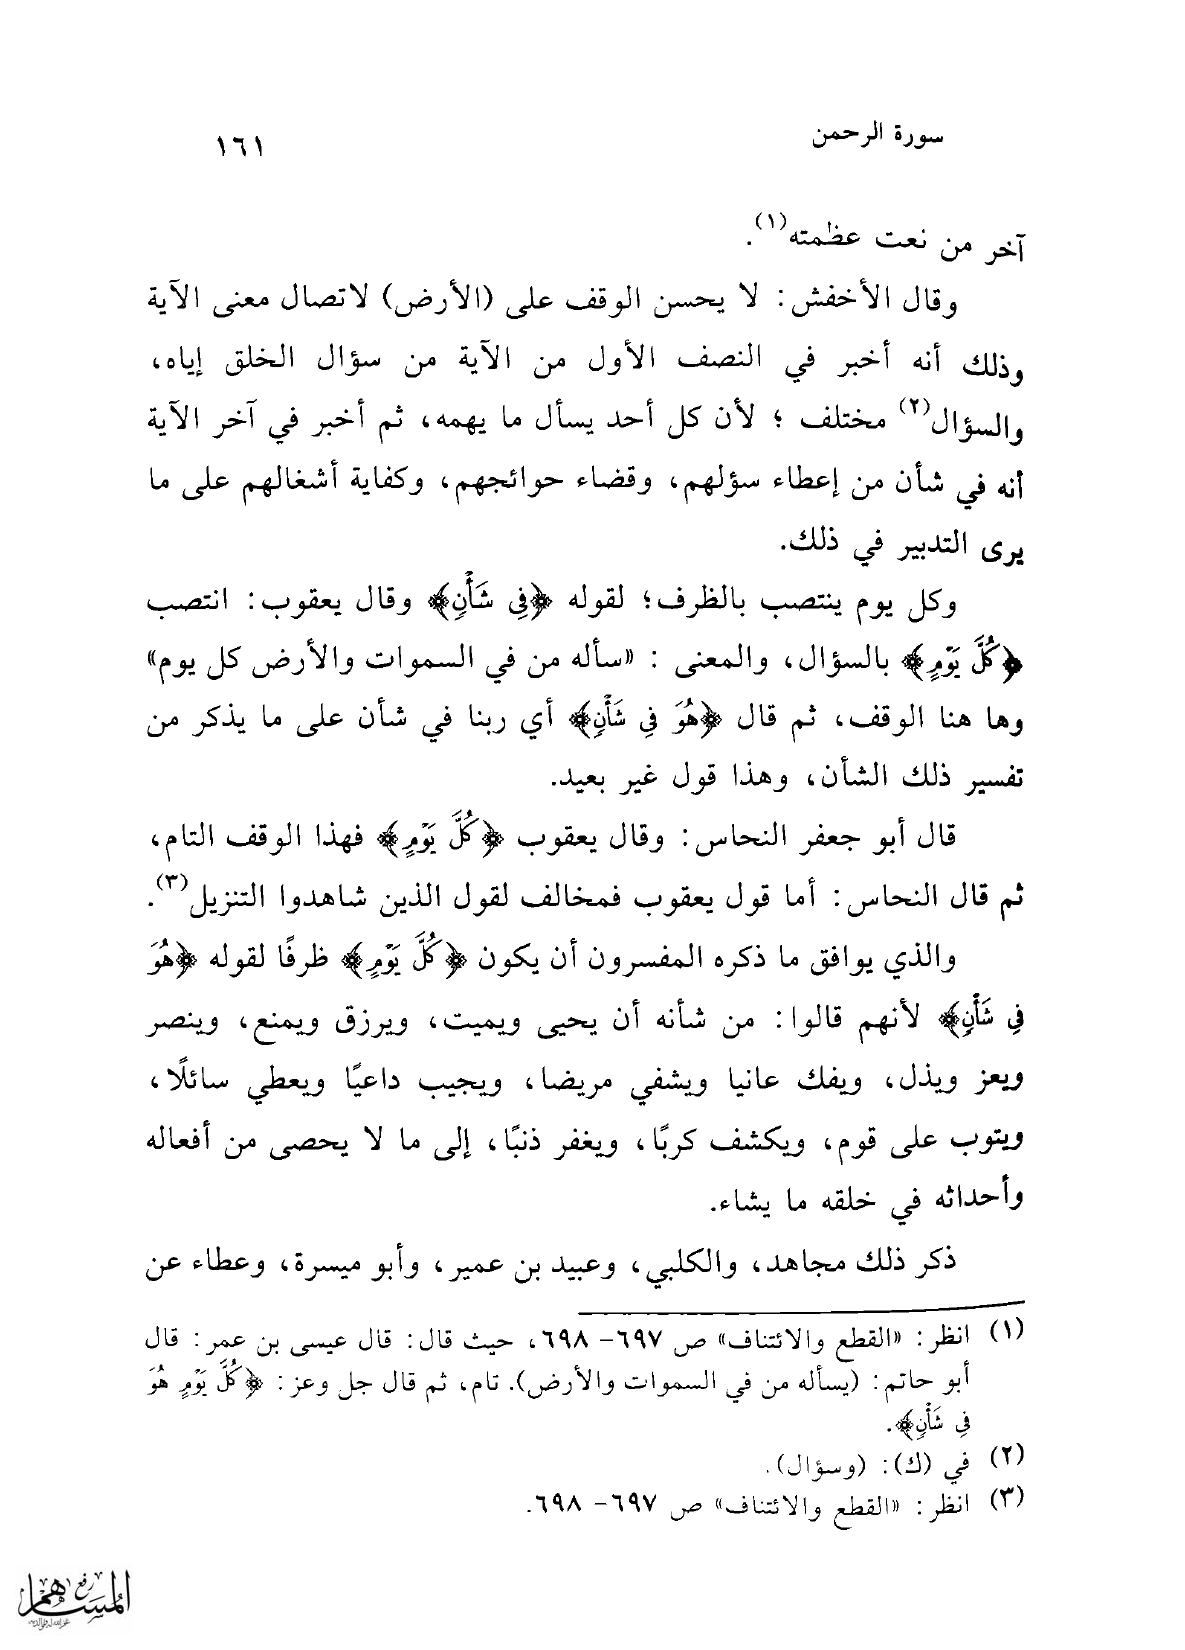 سورة الرحمن ١٦١
آخر من نعت عظمته(١).
وقال الأخفش: لا يحسن الوقف على (الأرض) لاتصال معنى الآية
وذلك أنه أخبر في النصف الأول من الآية من سؤال الخلق إياه،
والسؤال(٢) مختلف ؛ لأن كل أحد يسأل ما يهمه، ثم أخبر في آخر الآية
أنه في شأن من إعطاء سؤلهم، وقضاء حوائجهم، وكفاية أشغالهم على ما
يرى التدبير في ذلك.
وكل يوم ينتصب بالظرف؛ لقوله ﴿فِي شَأْنٍ﴾ وقال يعقوب: انتصب
﴿كُلَّ يَوْمٍ﴾ بالسؤال، والمعنى : «سأله من في السموات والأرض كل يوم»
وها هنا الوقف، ثم قال ﴿هُوَ فِي شَأْنٍ﴾ أي ربنا في شأن على ما يذكر من
تفسير ذلك الشأن، وهذا قول غير بعيد.
قال أبو جعفر النحاس: وقال يعقوب ﴿كُلَّ يَوْمٍ﴾ فهذا الوقف التام،
ثم قال النحاس: أما قول يعقوب فمخالف لقول الذين شاهدوا التنزيل(٣).
والذي يوافق ما ذكره المفسرون أن يكون ﴿كُلَّ يَوْمٍ﴾ ظرفًا لقوله ﴿هُوَ
فِي شَأْنٍ﴾ لأنهم قالوا: من شأنه أن يحيى ويميت، ويرزق ويمنع، وينصر
ويعز ويذل، ويفك عانيا ويشفي مريضا، ويجيب داعيًا ويعطي سائلًا،
ويتوب على قوم، ويكشف كربًا، ويغفر ذنبًا، إلى ما لا يحصى من أفعاله
وأحداثه في خلقه ما يشاء.
ذكر ذلك مجاهد، والكلبي، وعبيد بن عمير، وأبو ميسرة، وعطاء عن
(١) انظر: «القطع والائتناف» ص ٦٩٧- ٦٩٨، حيث قال: قال عيسى بن عمر: قال
أبو حاتم: (يسأله من في السموات والأرض). تام، ثم قال جل وعز: ﴿كُلَّ يَوْمٍ هُوَ
فِي شَأْنٍ﴾.
(٢) في (ك): (وسؤال).
(٣) انظر: «القطع والائتناف» ص ٦٩٧- ٦٩٨.
رفع
المساهم